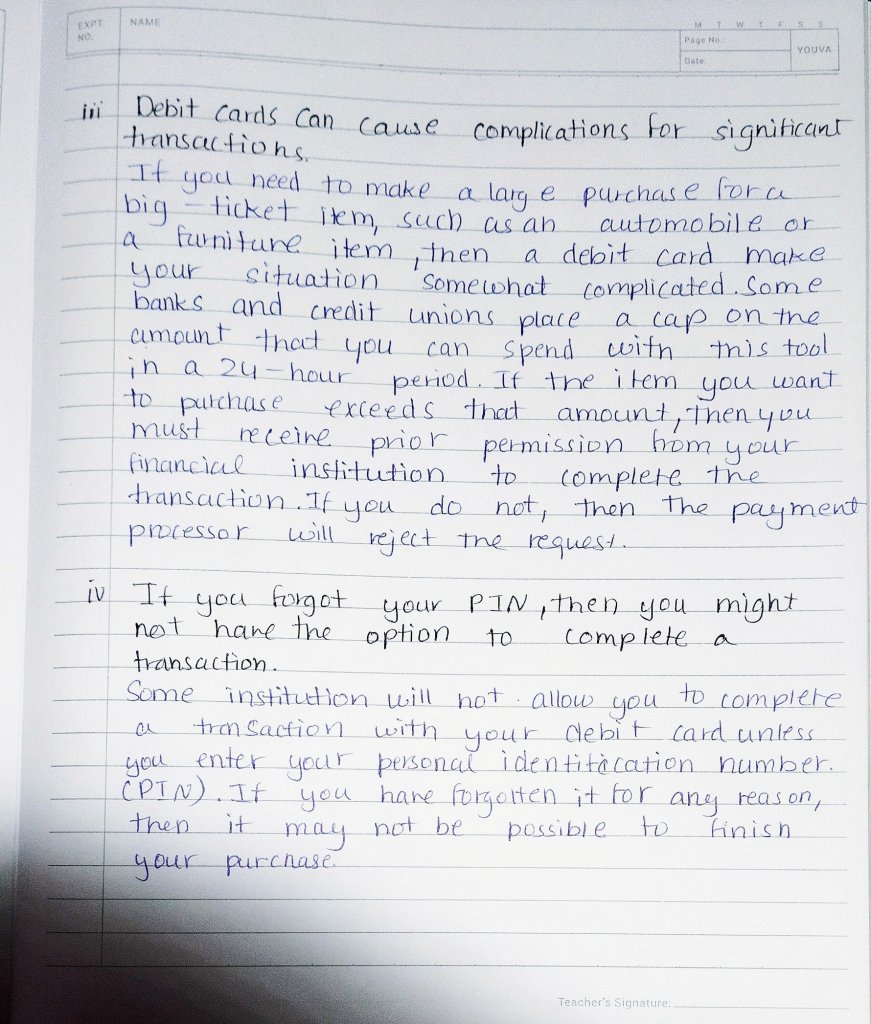 EXPT. NAME
NO.
M T W T F S S
Page No.:
YOUVA
Date:
iii Debit cards can cause complications for significant
transactions.
If you need to make a large purchase for a
big - ticket item, such as an automobile or
a furniture item, then a debit card make
your situation somewhat complicated. Some
banks and credit unions place a cap on the
amount that you can spend with this tool
in a 24-hour period. If the item you want
to purchase exceeds that amount, then you
must receive prior permission from your
financial institution to complete the
transaction. If you do not, then the payment
processor will reject the request.
iv If you forgot your PIN, then you might
not have the option to complete a
transaction.
Some institution will not allow you to complete
a transaction with your debit card unless
you enter your personal identification number.
(PIN). If you have forgotten it for any reason,
then it may not be possible to finish
your purchase.
Teacher's Signature: